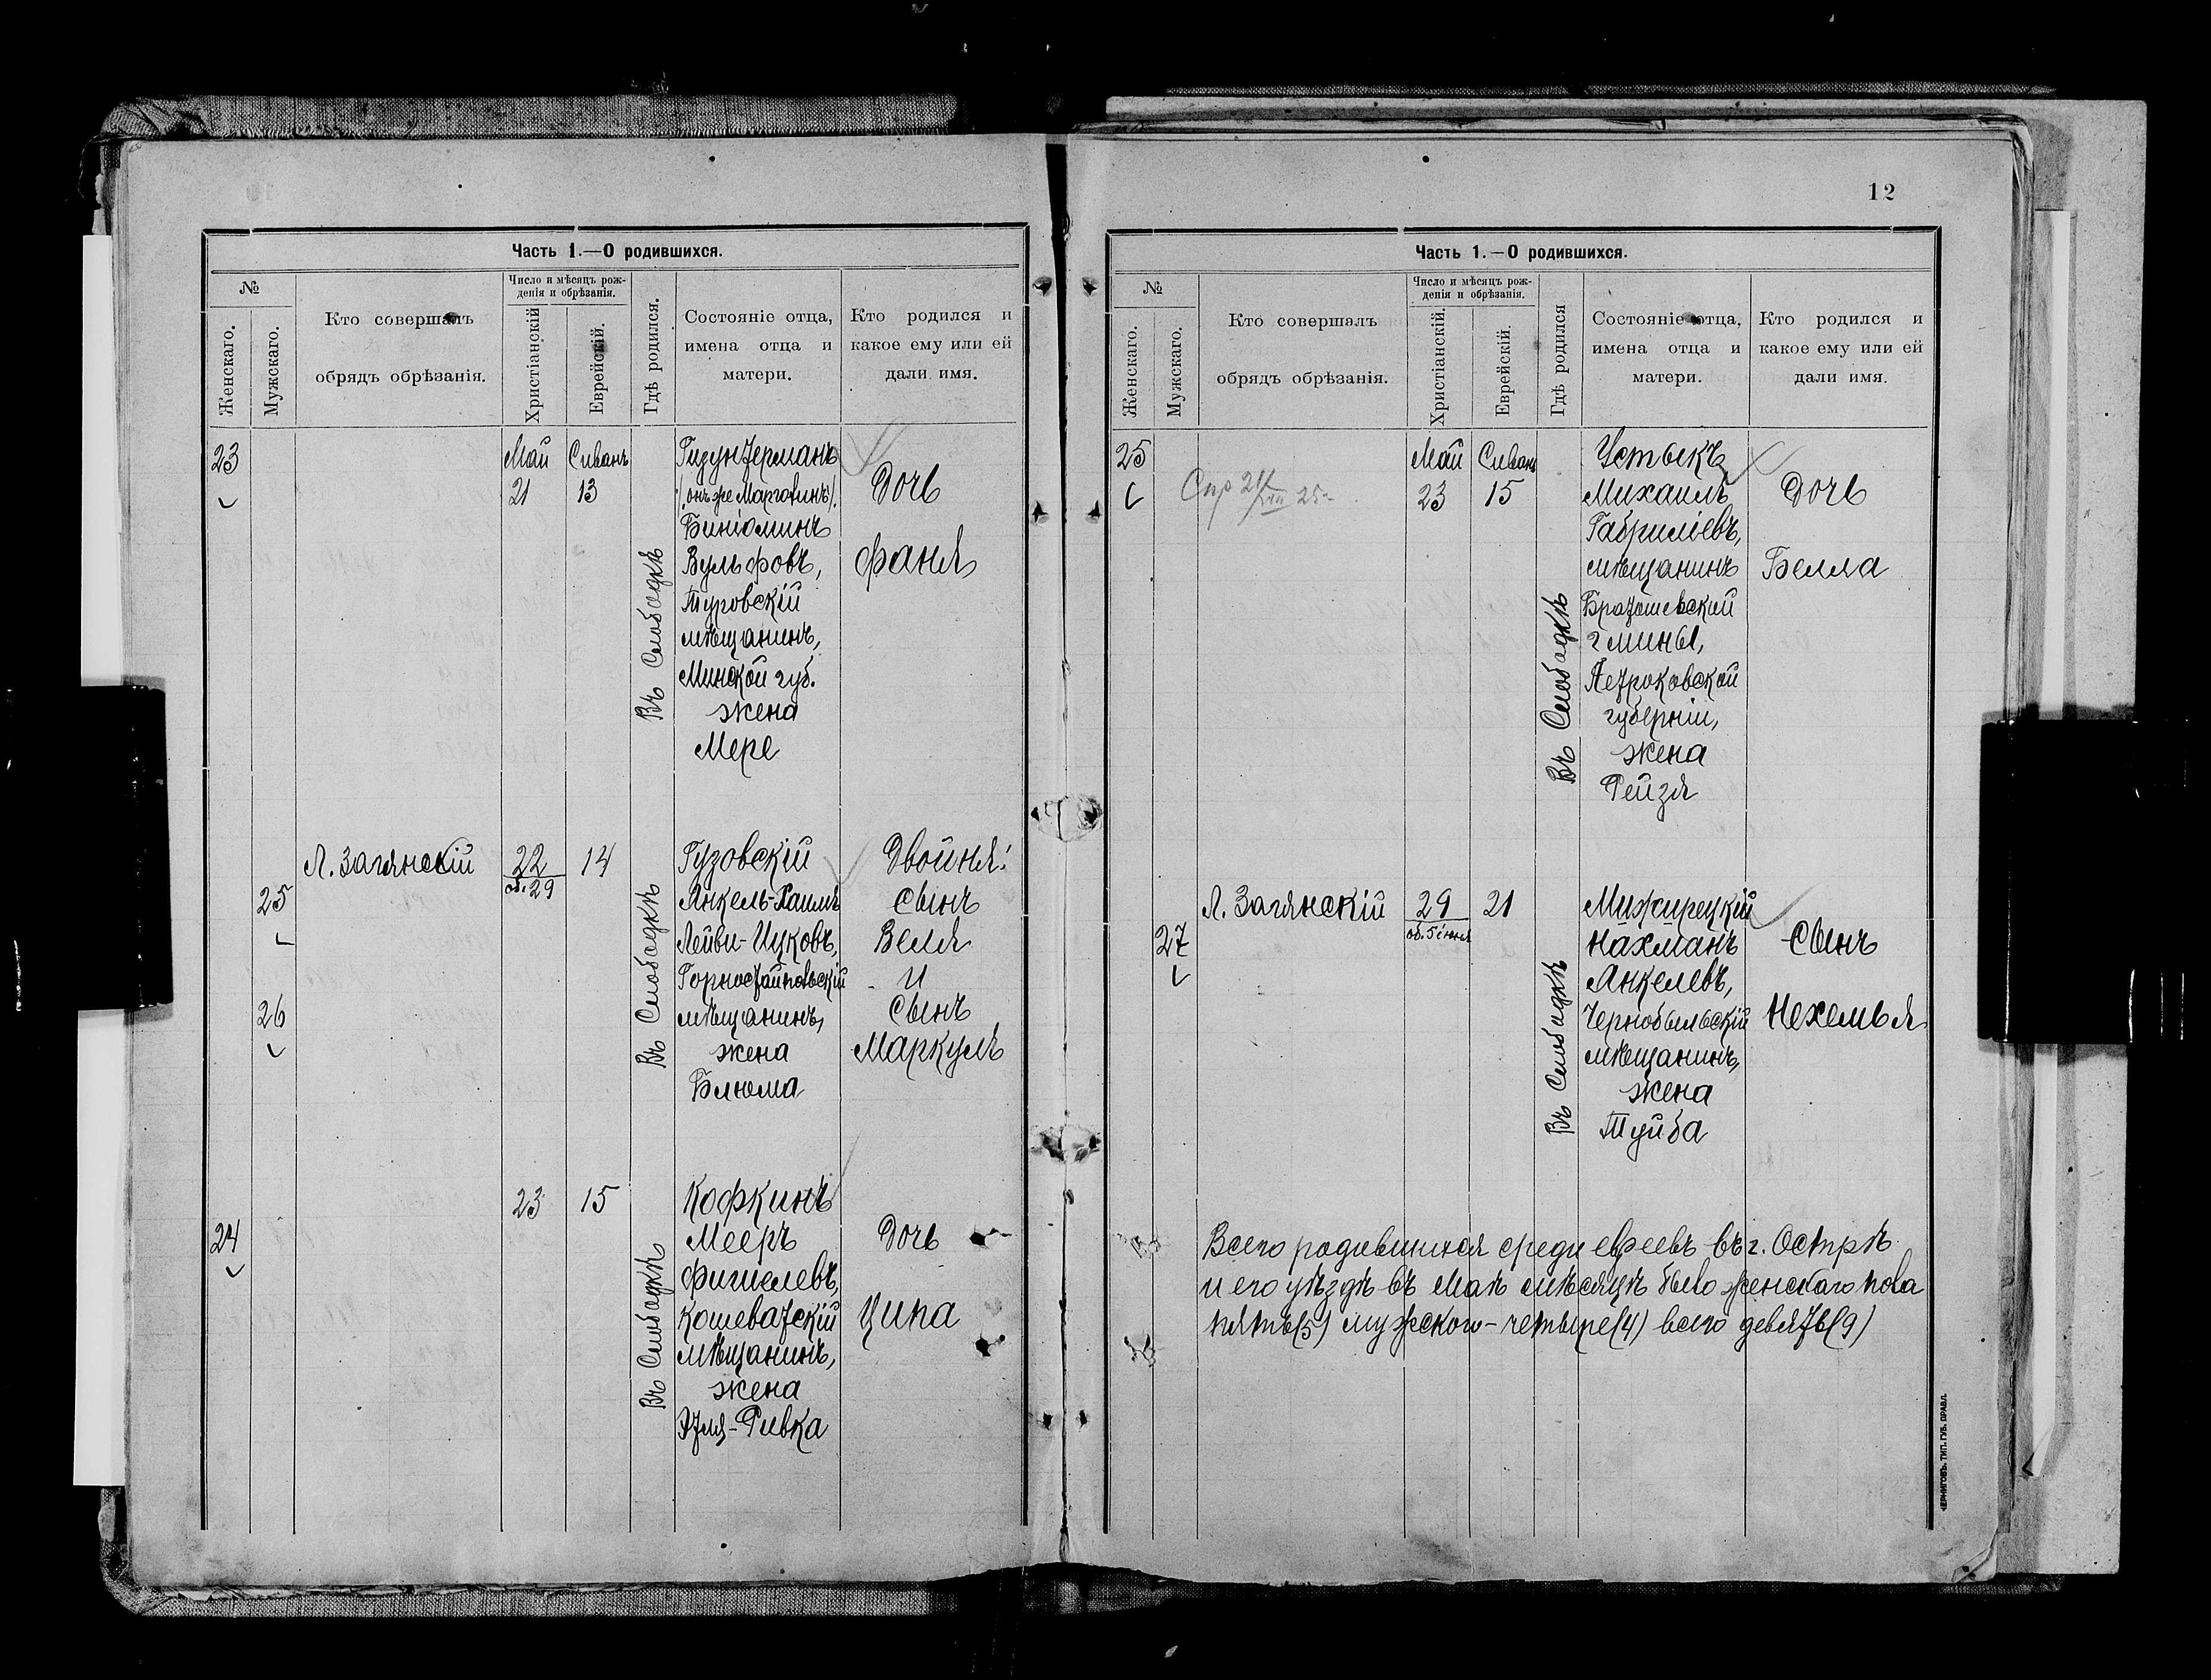 Часть 1.—О родившихся.
№
Женскаго.
Мужскаго.
Кто совершалъ
обрядъ обрѣзанія.
Число и мѣсяцъ рож-
денія и обрѣзанія.
Христіанскій
Еврейскій.
Гдѣ родился.
Состояніе отца,
имена отца и
матери.
Кто родился и
какое ему или ей
дали имя.
23
Май
21
Сиванъ
13
Въ Слободкѣ
(онъ же Марголинъ).
Биніоминъ
Вульфовъ,
Туровскій
мѣщанинъ,
Минской губ.
жена
Мере
Дочь
Фаня
25
26
Л. Загянскій
22
об. 29
14
Въ Слободкѣ
Гузовскій
Янкель-Хаимъ
Лейви-Ицковъ,
Горностайпольскій
мѣщанинъ,
жена
Блюма
Двойня:
сынъ
Веля
и
сынъ
Маркуль
24
23
15
Въ Слободкѣ
Кофкинъ
Мееръ
Фишелевъ,
Кошеватскій
мѣщанинъ,
жена
Этля-Ривка
Дочь
Ципа
12
Часть 1.—О родившихся.
№
Женскаго.
Мужскаго.
Кто совершалъ
обрядъ обрѣзанія.
Число и мѣсяцъ рож-
денія и обрѣзанія.
Христіанскій.
Еврейскій.
Гдѣ родился
Состояніе отца,
имена отца и
матери.
Кто родился и
какое ему или ей
дали имя.
25
Май
23
Сиванъ
15
Въ Слободкѣ
Устыкъ
Михаилъ
Габриліевъ,
мѣщанинъ
гмины,
Петроковской
губерніи,
жена
Рейзя
Дочь
Белла
27
Л. Загянскій
29
об. 5 іюня
21
Въ Слободкѣ
Мижирецкій
Нахманъ
Янкелевъ,
Чернобыльскій
мѣщанинъ,
жена
Туйба
Сынъ
Нехемья
Всего родившихся среди евреевъ въ г. Острѣ
и его уѣздѣ въ Маѣ мѣсяцѣ было женскаго пола
пять(5) мужского-четыре(4) всего девять(9)
ЧЕРНИГОВЪ. ТИП. ГУБ. ПРАВЛ.